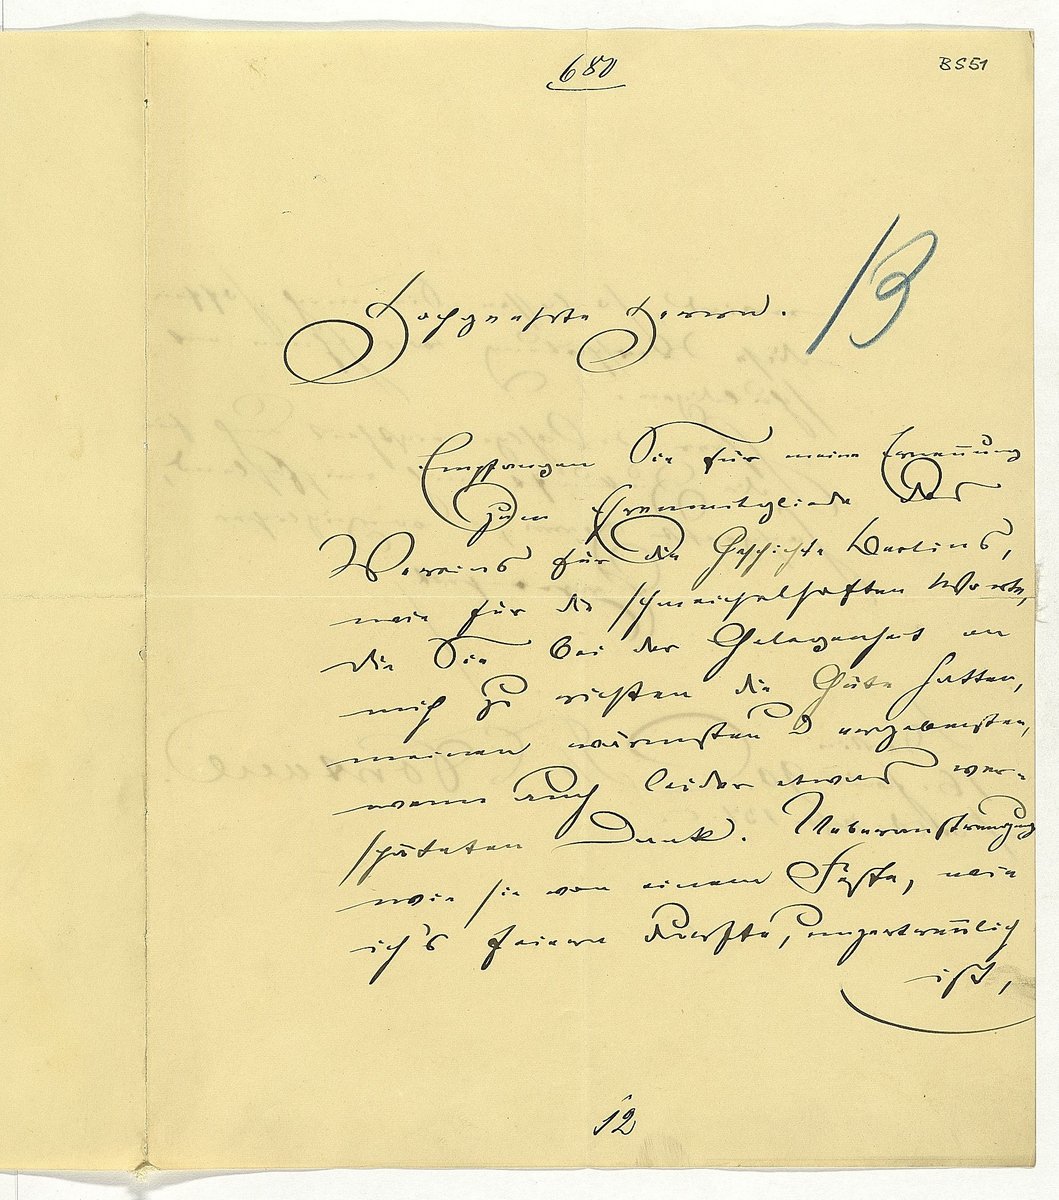 680
BS51
13
Hochgeehrte Herren.
Empfangen Sie für meine Ernennung
zum Ehrenmitgliede des
Vereins für die Geschichte Berlins,
wie für die schmeichelhaften Worte,
die Sie bei der Gelegenheit an
mich zu richten die Güte hatten,
meinen wärmsten u ergebensten,
wenn auch leider etwas ver-
späteten Dank. Ueberanstrengung
wie sie von einem Feste, wie
ich's feiern durfte, unzertrennlich
ist,
12